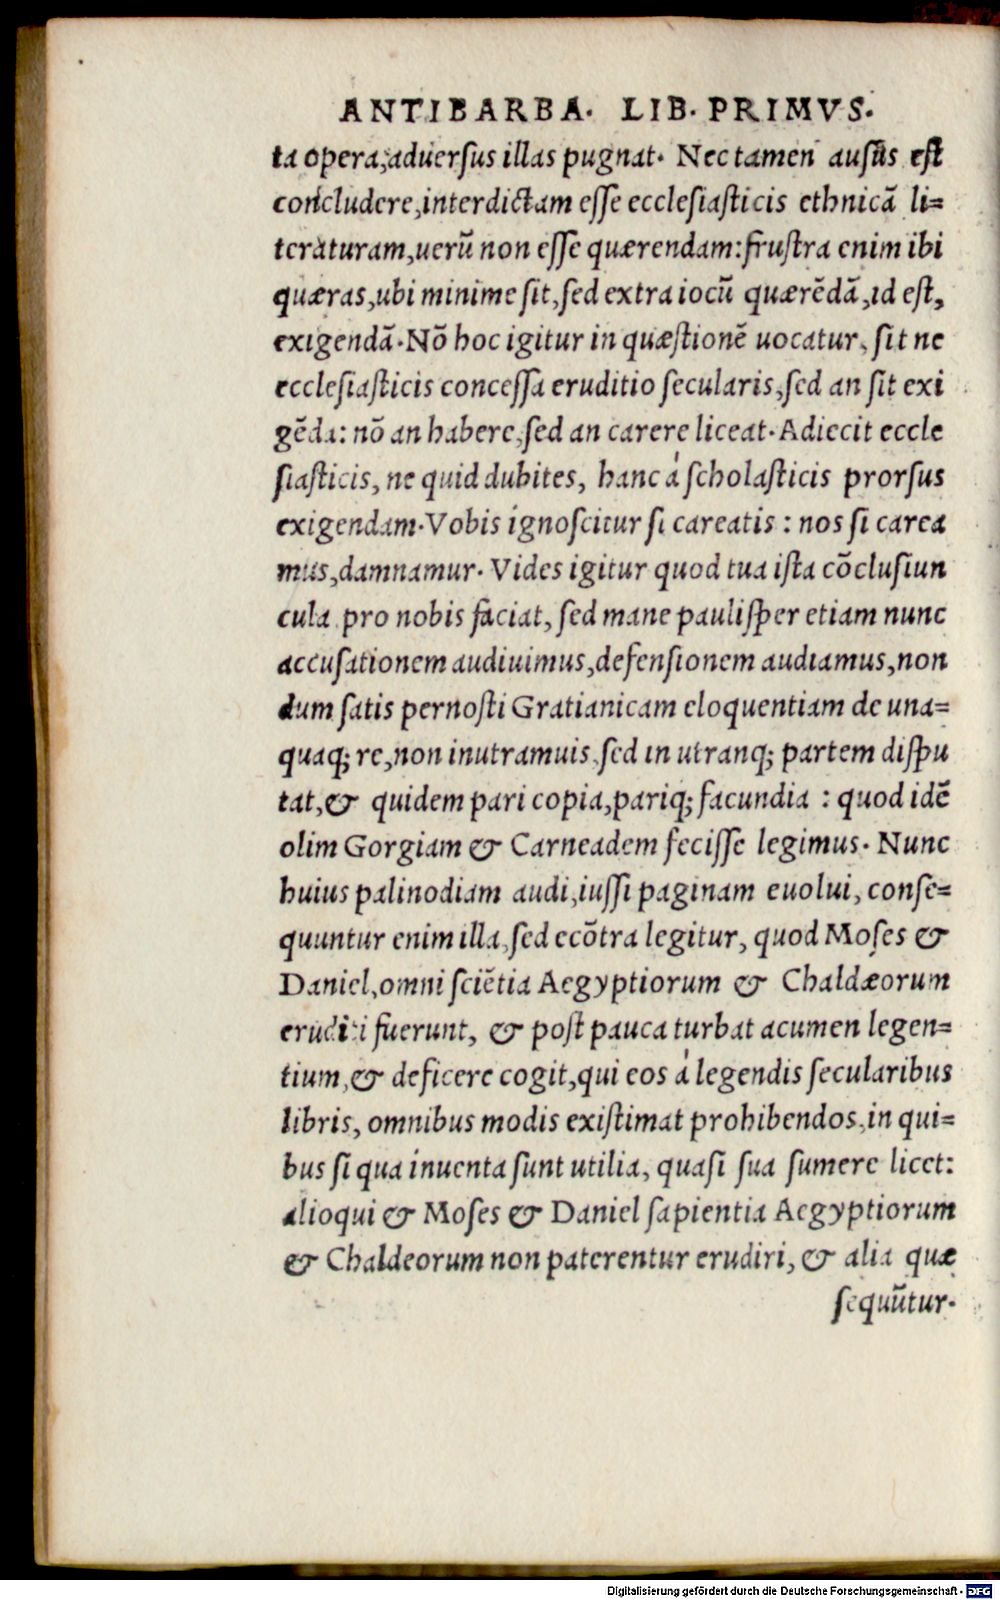 ANTIBARBA. LIB. PRIMVS.
ta opera, aduersus illas pugnat. Nec tamen ausus est
concludere, interdictam esse ecclesiasticis ethnicā li=
teraturam, uerū non esse quærendam: frustra enim ibi
quæras, ubi minime sit, sed extra iocū quærēdā, id est,
exigendā. Nō hoc igitur in quæstionē uocatur, sit ne
ecclesiasticis concessa eruditio secularis, sed an sit exi
gēda: nō an habere, sed an carere liceat. Adiecit eccle
siasticis, ne quid dubites, hanc à scholasticis prorsus
exigendam. Vobis ignoscitur si careatis : nos si carea
mus, damnamur. Vides igitur quod tua ista cōclusiun
cula pro nobis faciat, sed mane paulisper etiam nunc
accusationem audiuimus, defensionem audiamus, non
dum satis pernosti Gratianicam eloquentiam de una=
quaq; re, non inutramuis, sed in utranq; partem dispu
tat, & quidem pari copia, pariq; facundia : quod idē
olim Gorgiam & Carneadem fecisse legimus. Nunc
huius palinodiam audi, iussi paginam euolui, conse=
quuntur enim illa, sed ecōtra legitur, quod Moses &
Daniel, omni sciētia Aegyptiorum & Chaldæorum
eruditi fuerunt, & post pauca turbat acumen legen=
tium, & deficere cogit, qui eos à legendis secularibus
libris, omnibus modis existimat prohibendos, in qui=
bus si qua inuenta sunt utilia, quasi sua sumere licet:
alioqui & Moses & Daniel sapientia Aegyptiorum
& Chaldeorum non paterentur erudiri, & alia quæ
sequūtur.
Digitalisierung gefördert durch die Deutsche Forschungsgemeinschaft - DFG